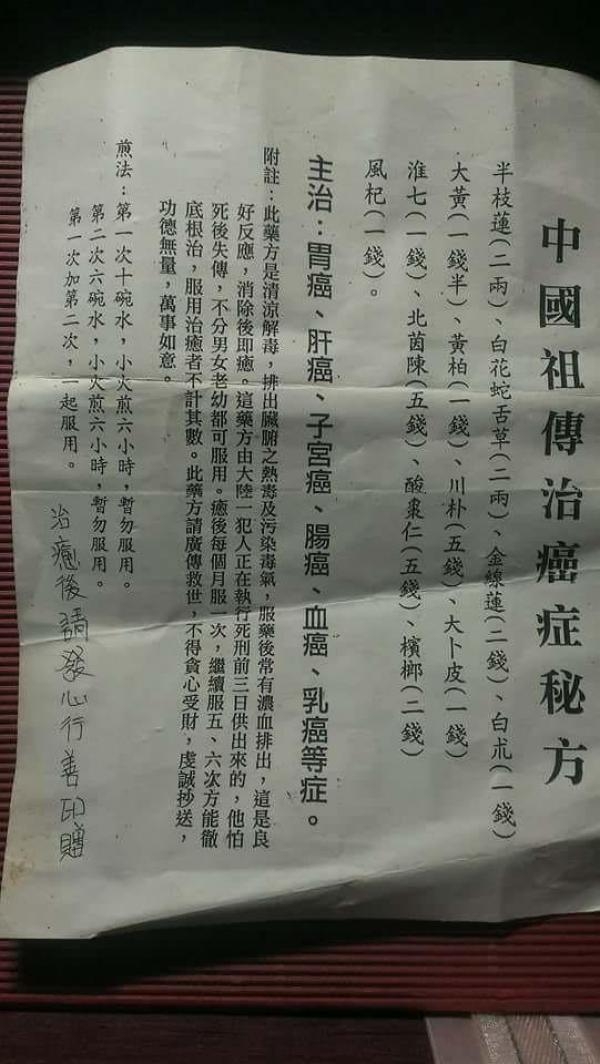 中國祖傳治癌症秘方
半枝蓮(二兩)、白花蛇舌草(二兩)、金線蓮(二錢)、白朮(一錢)
大黃(一錢半)、黃柏(一錢)、川朴(五錢)、大卜皮(一錢)
淮七(一錢)、北茵陳(五錢)、酸棗仁(五錢)、檳榔(二錢)
風杞(一錢)。
主治：胃癌、肝癌、子宮癌、腸癌、血癌、乳癌等症。
附註：此藥方是清涼解毒，排出臟腑之熱毒及污染毒氣，服藥後常有濃血排出，這是良
好反應，消除後即癒。這藥方由大陸一犯人正在執行死刑前三日供出來的，他怕
死後失傳，不分男女老幼都可服用。癒後每個月服一次，繼續服五、六次方能徹
底根治，服用治癒者不計其數。此藥方請廣傳救世，不得貪心受財，虔誠抄送，
功德無量，萬事如意。
煎法：第一次十碗水，小火煎六小時，暫勿服用。
第二次六碗水，小火煎六小時，暫勿服用。
第一次加第二次，一起服用。
治癒後請發心行善印贈